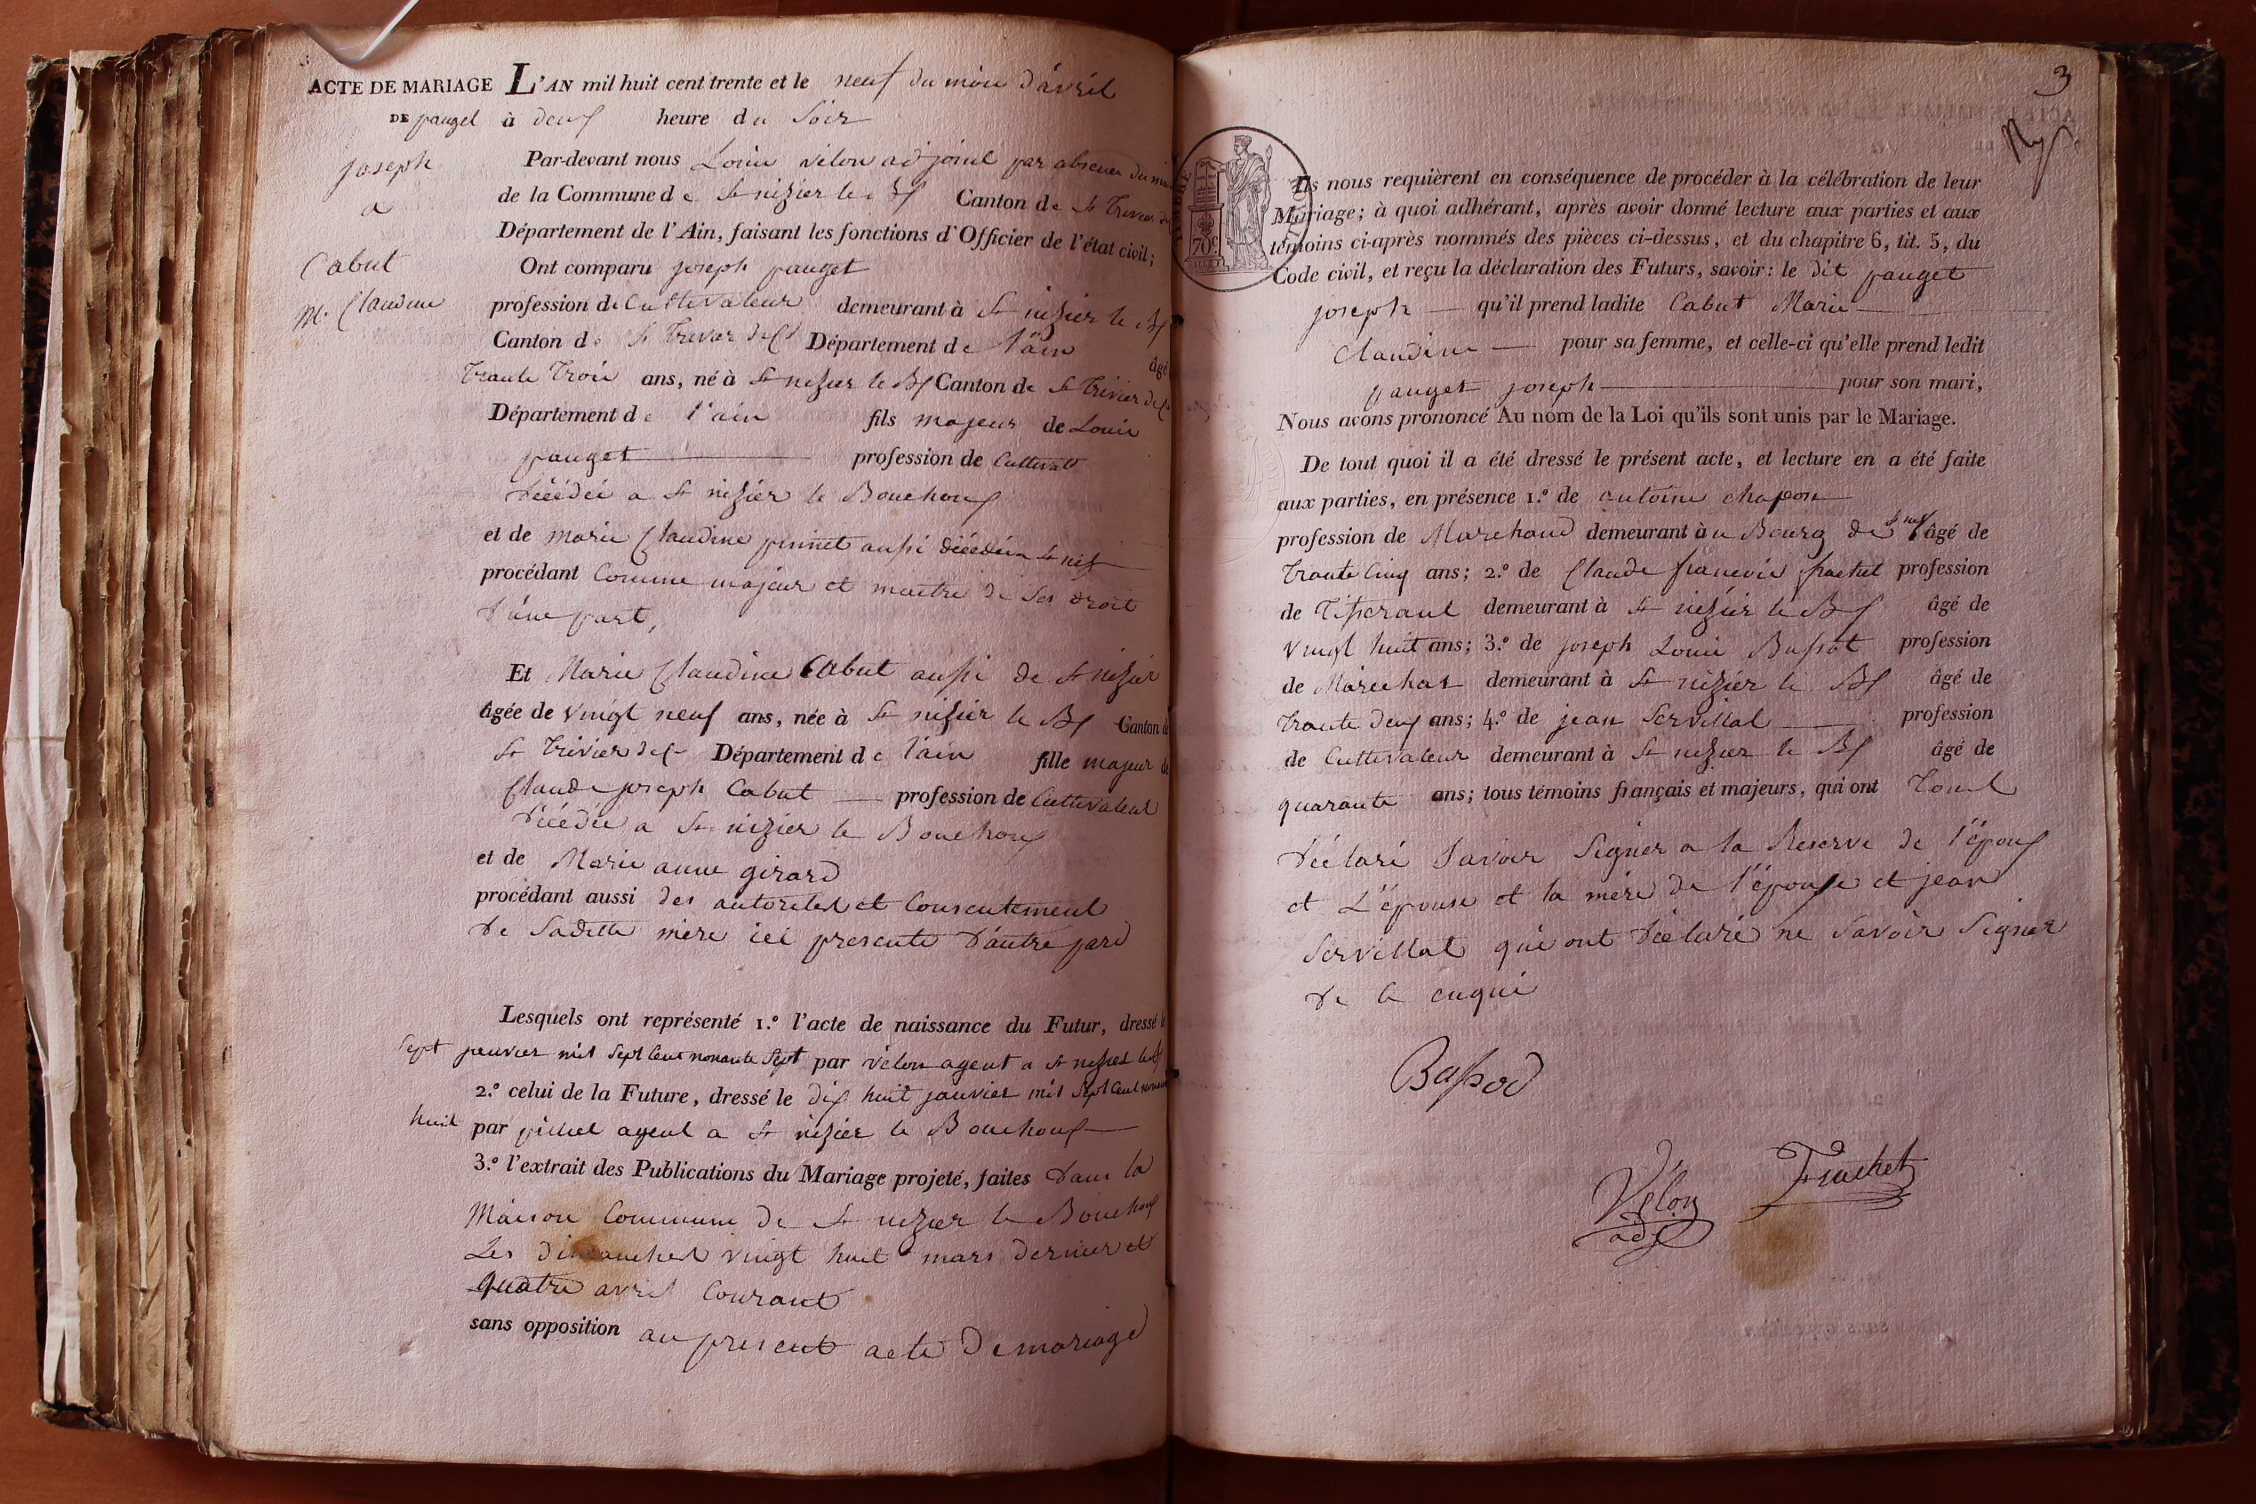 ACTE DE MARIAGE L'AN mil huit cent trente et le neuf du mois d'avril
DE pauget à deux heure du Soir
joseph
a
Cabut
M. Claudine
Par-devant nous Louis vélon adjoint par absence du maire
de la Commune de St nizier le Bx Canton de St Trivier de
Département de l'Ain, faisant les fonctions d'Officier de l'état civil;
Ont comparu joseph pauget
profession de Cultivateur demeurant à St nizier le Bx
Canton de St Trivier de Ct Département de l'ain âgé
Trante Trois ans, né à St nizier le Bx Canton de St Trivier de Ct
Département de l'ain fils majeur de Louis
pauget profession de Cultivatr
décédé a St nizier le Bouchoux
et de marie Claudine pinnet aussi décédée a St niz
procédant Comme majeur et maitre de Ses droit
d'une part,
Et Marie Claudine Cabut aussi de St nizier
âgée de vingt neuf ans, née à St nizier le Bx Canton de
St Trivier de Ct Département de l'ain fille majeur de
Claude joseph Cabut profession de Cultivateur
décédé a St nizier le Bouchoux
et de Marie anne girard
procédant aussi des autorites et Consentement
de Saditte mère ici presente d'autre pard
Lesquels ont représenté 1.º l'acte de naissance du Futur, dressé le
Sept janvier mil Sept Cent nonante Sept par vélon agent a St nizier le Bx
2.º celui de la Future, dressé le dix huit janvier mil Sept Cent nonante
huit par pichet agent a St nizier le Bouchoux
3.º l'extrait des Publications du Mariage projeté, faites dans la
Maison Commune de St nizier le Bouchoux
Les dimanches vingt huit mars dernier et
quatre avril Courant
sans opposition au present acte De mariage
3
TIMBRE
70c
Ils nous requièrent en conséquence de procéder à la célébration de leur
Mariage; à quoi adhérant, après avoir donné lecture aux parties et aux
témoins ci-après nommés des pièces ci-dessus, et du chapitre 6, tit. 5, du
Code civil, et reçu la déclaration des Futurs, savoir: le dit pauget
joseph qu'il prend ladite Cabut Marie
Claudine pour sa femme, et celle-ci qu'elle prend ledit
pauget joseph pour son mari,
Nous avons prononcé Au nom de la Loi qu'ils sont unis par le Mariage.
De tout quoi il a été dressé le présent acte, et lecture en a été faite
aux parties, en présence 1.º de antoine chapon
profession de Marchand demeurant à u Bourg de St niz âgé de
Trante Cinq ans; 2.º de Claude françois frachet profession
de Tisserant demeurant à St nizier le Bx âgé de
vingt huit ans; 3.º de joseph Louis Bassot profession
de Marechat demeurant à St nizier le Bx âgé de
Trante deux ans; 4.º de jean Servillat profession
de Cultivateur demeurant à St nizier le Bx âgé de
quarante ans; tous témoins français et majeurs, qui ont Tous
déclaré Savoir Signer a la Reserve de l'époux
et L'épouse et la mère de l'épouse et jean
Servillat qui ont déclaré ne Savoir Signer
de ce enquis
Bassod
Vélon
adj
Frachet